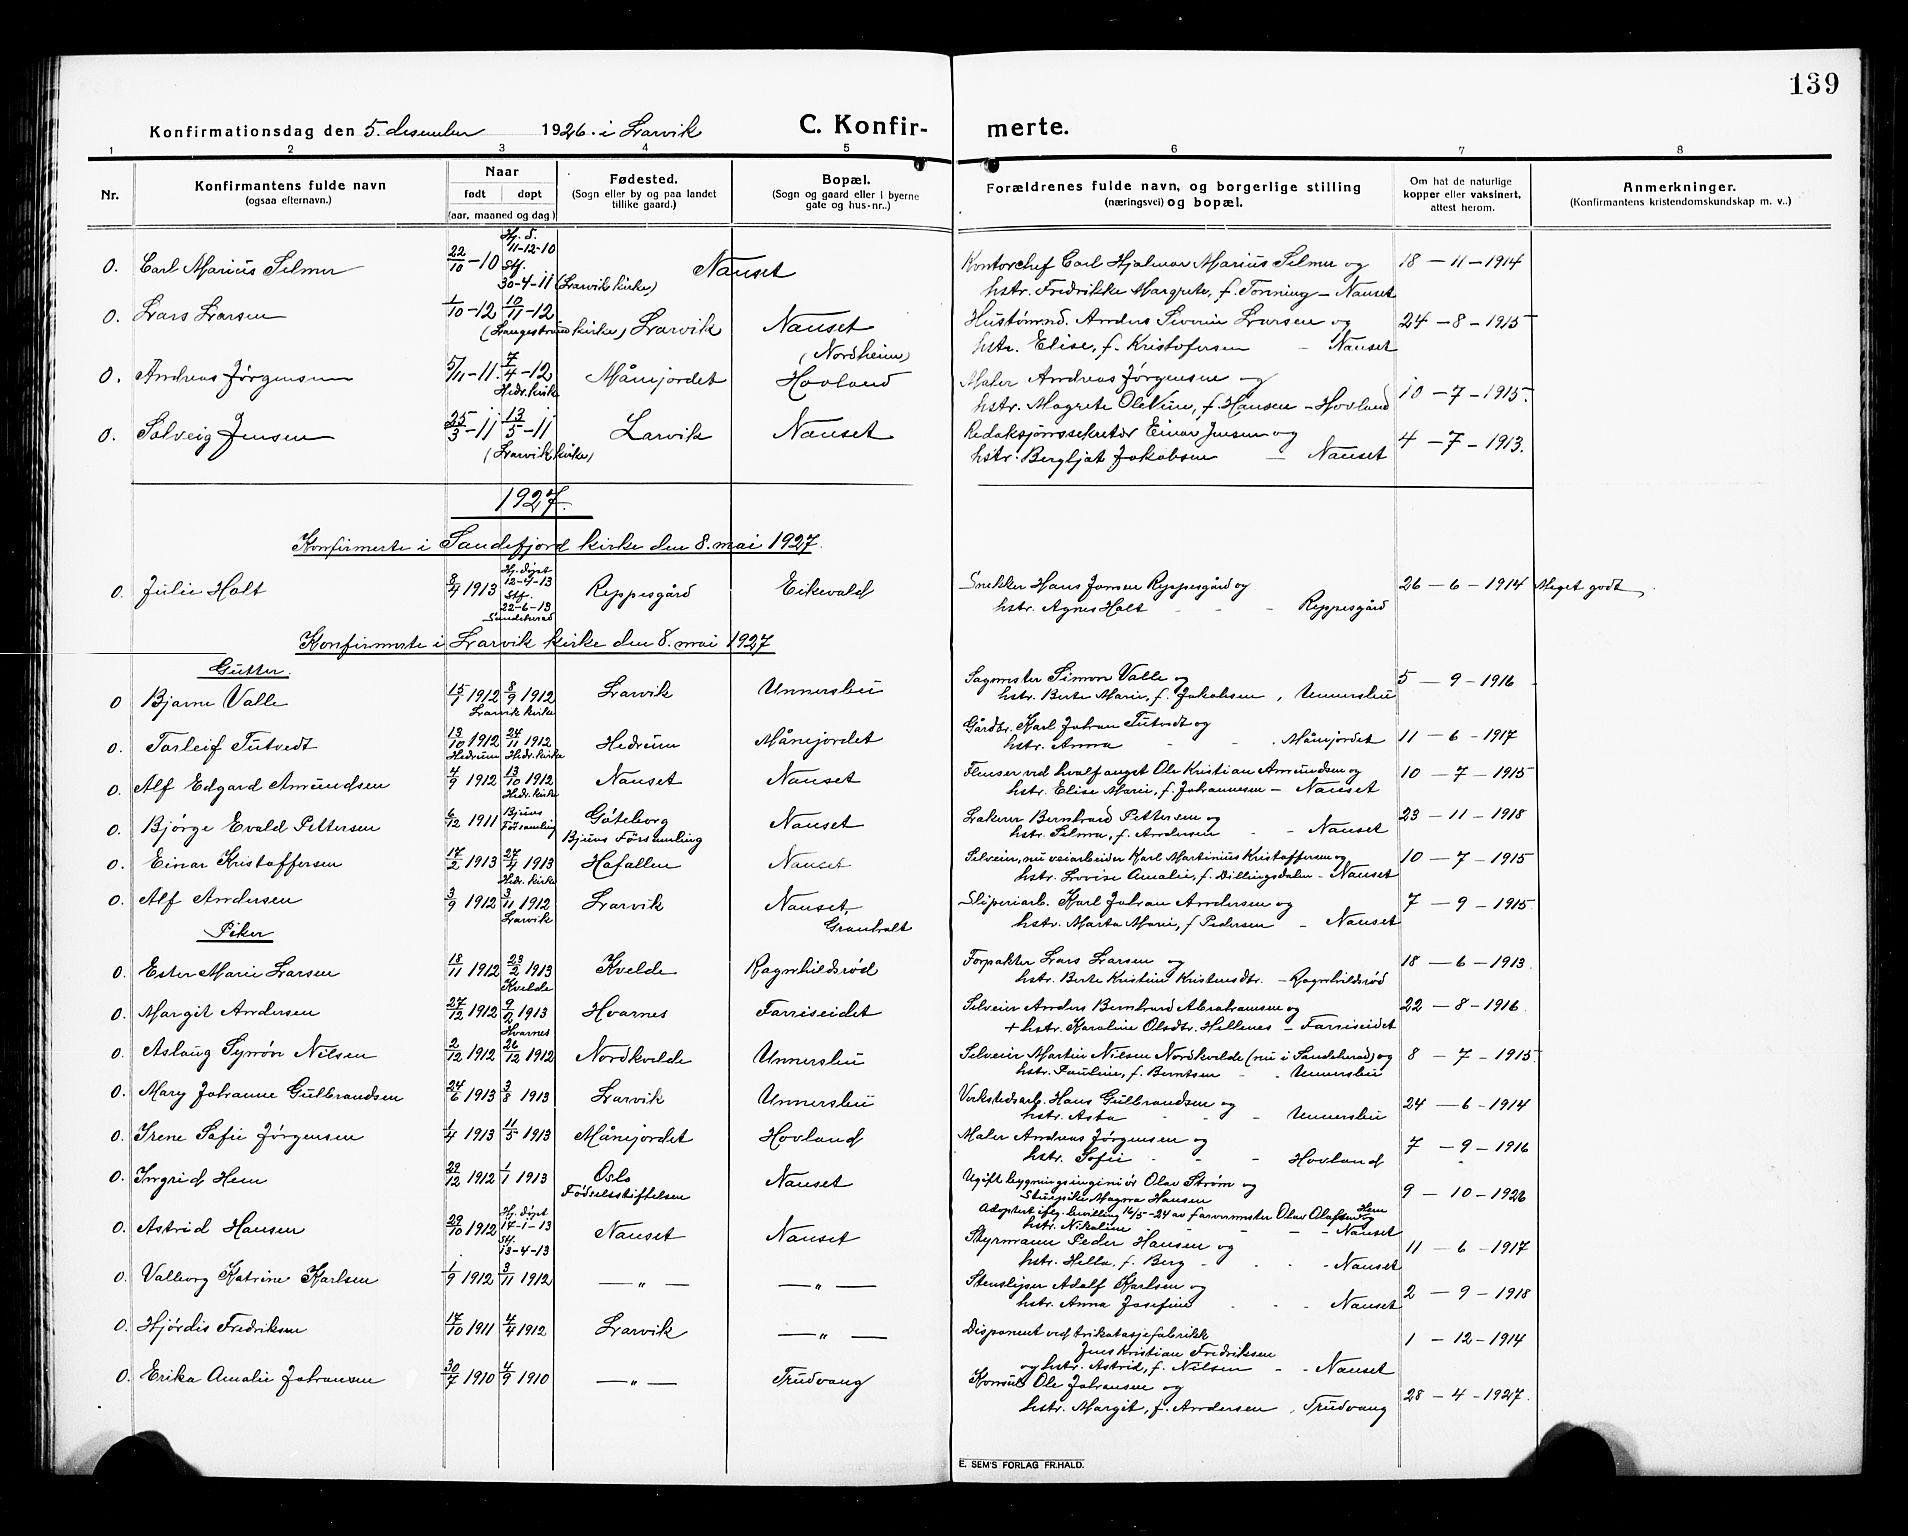 139
Konfirmationsdag den 5. desember 1926 i Larvik C. Konfir- merte.
1 2 3 4 5 6 7 8
Nr. Konfirmantens fulde navn (ogsaa efternavn.) Naar født døpt (aar, maaned og dag) Fødested. (Sogn eller by og paa landet tillike gaard.) Bopæl. (Sogn og gaard eller i byerne gate og hus-nr..) Forældrenes fulde navn, og borgerlige stilling (næringsvei) og bopæl. Om hat de naturlige kopper eller vaksinert, attest herom. Anmerkninger. (Konfirmantens kristendomskundskap m. v..)
Hj. d.
11-12-10
0. Carl Marius Selmer 22/10-10 Stf. Nanset Kontorchef Carl Hjalmar Marius Selmer og 18-11-1914
30-4-11 (Larvik kirke) hstr. Fredrikke Margrete, f. Tønning - Nanset
0. Lars Larsen 1/10-12 10/11-12 Larvik Nanset Hustømnd. Anders Severin Larsen og 24-8-1915
(Langestrand kirke) (Nordheim) hstr. Elise, f. Kristofersen - Nanset
0. Andreas Jørgensen 5/11-11. 7/4-12 Månejordet Hovland Maler Andreas Jørgensen og 10-7-1915.
Hedr. kirke hstr. Magrete OleVine, f. Hansen - Hovland
0. Solveig Jensen 25/3-11 13/5-11 Larvik Nanset Redaksjonssekretær Einar Jensen og 4-7-1913.
(Larvik kirke) hstr. Bergljot Jakobsen - Nanset
1927.
Konfirmerte i Sandefjord kirke den 8. mai 1927.
Hj. døpt
12-4-13
0. Julie Holt 8/4 1913 Stf. Reppesgård Eikevald Snekker Hans Jensen Reppesgård og 26-6-1914 Meget godt.
22-6-13 hstr. Agnes Holt - - - Reppesgård
Sandeherad
Konfirmerte i Larvik kirke den 8. mai 1927
Gutter.
0 Bjarne Valle 15/7 1912 8/9 1912 Larvik Unnersbu Sagmester Simon Valle og 5-9-1916
Larvik kirke hstr. Berte Marie, f. Jakobsen, Unnersbu
0. Torleif Tutvedt 13/10 1912 24/11 1912 Hedrum Månejordet Gårdbr. Karl Johan Tutvedt og 11-6-1917
Hedrum Hedr. kirke hstr. Anna - - . Månejordet
0. Alf Edgard Amundsen 4/9 1912 13/10 1912 Nanset Nanset Flenser ved hvalfanget Ole Kristian Amundsen og 10-7-1915
Hedr. kirke hstr. Elise Marie, f. Johannesen - Nanset
0. Bjørge Evald Pettersen 6/12 1911 Bjurs Førsamling Göteborg Nanset Lakerer Bernhard Pettersen og 23-11-1918
Bjurs Församling hstr. Selma, f. Andersen - - Nanset
0. Einar Kristoffersen 17/2 1913 27/4 1913 Hafallen Nanset Selveier, nu veiarbeider Karl Martinius Kristoffersen og 10-7-1915
Hedr. kirke hstr. Lovise Amalie, f. Dillingsdalen - Nanset
0. Alf Andersen 3/9 1912 3/11 1912 Larvik Nanset, Sliperiarb. Karl Johan Andersen og 7-9-1915.
Larvik Granholt hstr. Marta Marie, f. Pedersen - Nanset
Piker
0. Ester Marie Larsen 18/11 1912 23/2 1913 Kvelde Ragnhildsrød Forpakter Lars Larsen og 18-6-1913
Kvelde hstr. Berte Kristine Kristensdtr. - Ragnhildsrød
0. Margit Andersen 27/12 1912 9/2 1913 Hvarnes Farriseidet Selveier Anders Bernhard Abrahamsen og 22-8-1916.
Hvarnes + hstr. Karoline Olsdtr. Hellenes - Farriseidet
0. Aslaug Synøv Nilsen 2/12 1912 26/12 1912 Nordkvelde Unnersbu Selveier Martin Nilsen Nordkvelde (nu i Sandeherad) og 8-7-1915
hstr. Pauline, f. Berntsen - . Unnersbu
0. Mary Johanne Gulbrandsen 24/6 1913 3/8 1913 Larvik Unnersbu Verkstedsarb. Hans Gulbrandsen og 24-6-1914
hstr. Asta - - Unnersbu
0. Irene Sofie Jørgensen 1/4 1913 11/5 1913 Månejordet Hovland Maler Andreas Jørgensen og 7-9-1916
hstr. Sofie - - - Hovland
0. Ingrid Hem 29/12 1912 1/1 1913 Oslo Nanset Ugift bygningsingeniør Olav Strøm og 9-10-1926
Fødselsstiftelsen Stuepike Magna Hansen
Adoptert iflg. bevilling 16/5-24 av farvermester Olav Olafsen Hem og
hstr. Nikoline - - - Nanset
0. Astrid Hansen 29/10 1912 Hj. døpt 17-1-13 Stf. 13-4-13 Nanset Nanset Styrmann Peder Hansen og 11-6-1917
hstr. Hella, f. Berg - . . - Nanset
0. Valborg Katrine Karlsen 1/9 1912 3/11 1912 — " — — " — Stensliper Adolf Karlsen og 2-9-1918
hstr. Anna Josefine . - . - Nanset
0. Hjørdis Fredriksen 17/10 1911 4/4 1912 Larvik — " — Disponent ved trikotasjefabrikk 1-12-1914
Jens Kristian Fredriksen
og hstr. Astrid, f. Nilsen - - Nanset
0. Erika Amalie Johansen 30/7 1910 4/9 1910 — " — Trudvang Konsul Ole Johansen og 28-4-1927.
hstr. Margit, f. Andersen, Trudvang
E. SEM'S FORLAG FR.HALD.